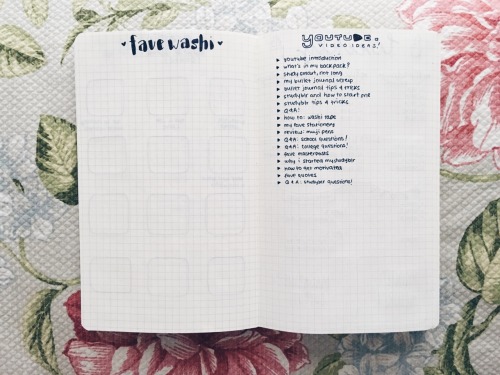 fave washi
YOUTUBE
VIDEO IDEAS!
youtube introduction
what's in my backpack?
study smart, not long
my bullet journal setup
bullet journal tips & tricks
studyblr and how to start one
studyblr tips & tricks
Q&A!
how to: washi tape
my fave stationery
review: muji pens
Q&A: school questions!
Q&A: college questions!
fave masterposts
why i started my studyblr
how to get motivated
fave quotes
Q&A: studyblr questions!